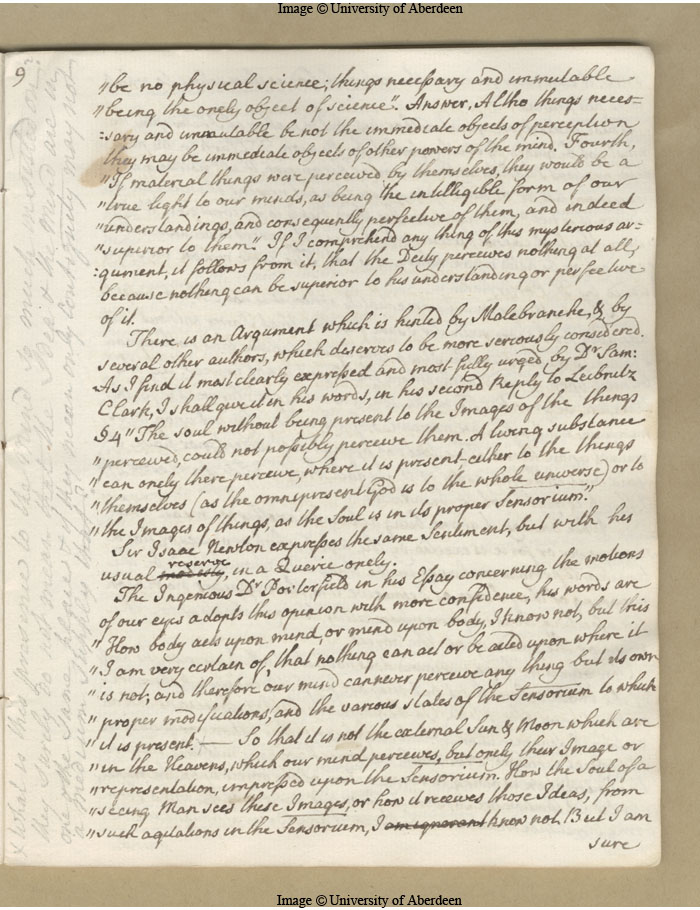 Image © University of Aberdeen
9
"be no physical science; things necessary and immutable
"being the onely object of science". Answer, Altho things neces=
:sary and immutable be not the immediate objects of perception
they may be immediate objects of other powers of the mind. Fourth,
"If material things were perceived by themselves, they would be a
"true light to our minds, as being the intelligible form of our
"understandings, and consequently perfective of them, and indeed
"superior to them". If I comprehend any thing of this mysterious ar=
:gument, it follows from it, that the Deity perceives nothing at all,
because nothing can be superior to his understanding or perfective
of it.
There is an Argument which is hinted by Malebranche, & by
several other authors, which deserves to be more seriously considered.
As I find it most clearly expressed and most fully urged by Dr Sam:
Clark, I shall give it in his words, in his second Reply to Leibnitz
§4 "The soul without being present to the Images of the things
"perceived, could not possibly perceive them. A living substance
"can onely there perceive, where it is present either to the things
"themselves (as the omnipresent God is to the whole universe) or to
"the Images of things, as the Soul is in its proper Sensorium."
Sir Isaac Newton expresses the same Sentiment, but with his
usual modesty reserve, in a Querie onely.
The Ingenious Dr Porterfield in his Essay concerning the motions
of our eyes adopts this opinion with more confidence, his words are
"How body acts upon mind, or mind upon body, I know not, but this
"I am very certain of, that nothing can act or be acted upon where it
"is not; and therefore our mind can never perceive any thing but its own
"proper modifications, and the various states of the Sensorium to which
"it is present. — So that it is not the external Sun & Moon which are
"in the Heavens, which our mind perceives, but onely their Image or
"representation, impressed upon the Sensorium. How the Soul of a
"seeing Man sees these Images, or how it receives those Ideas, from
"such agitations in the Sensorium, I am ignorant know not. But I am
sure
Image © University of Aberdeen